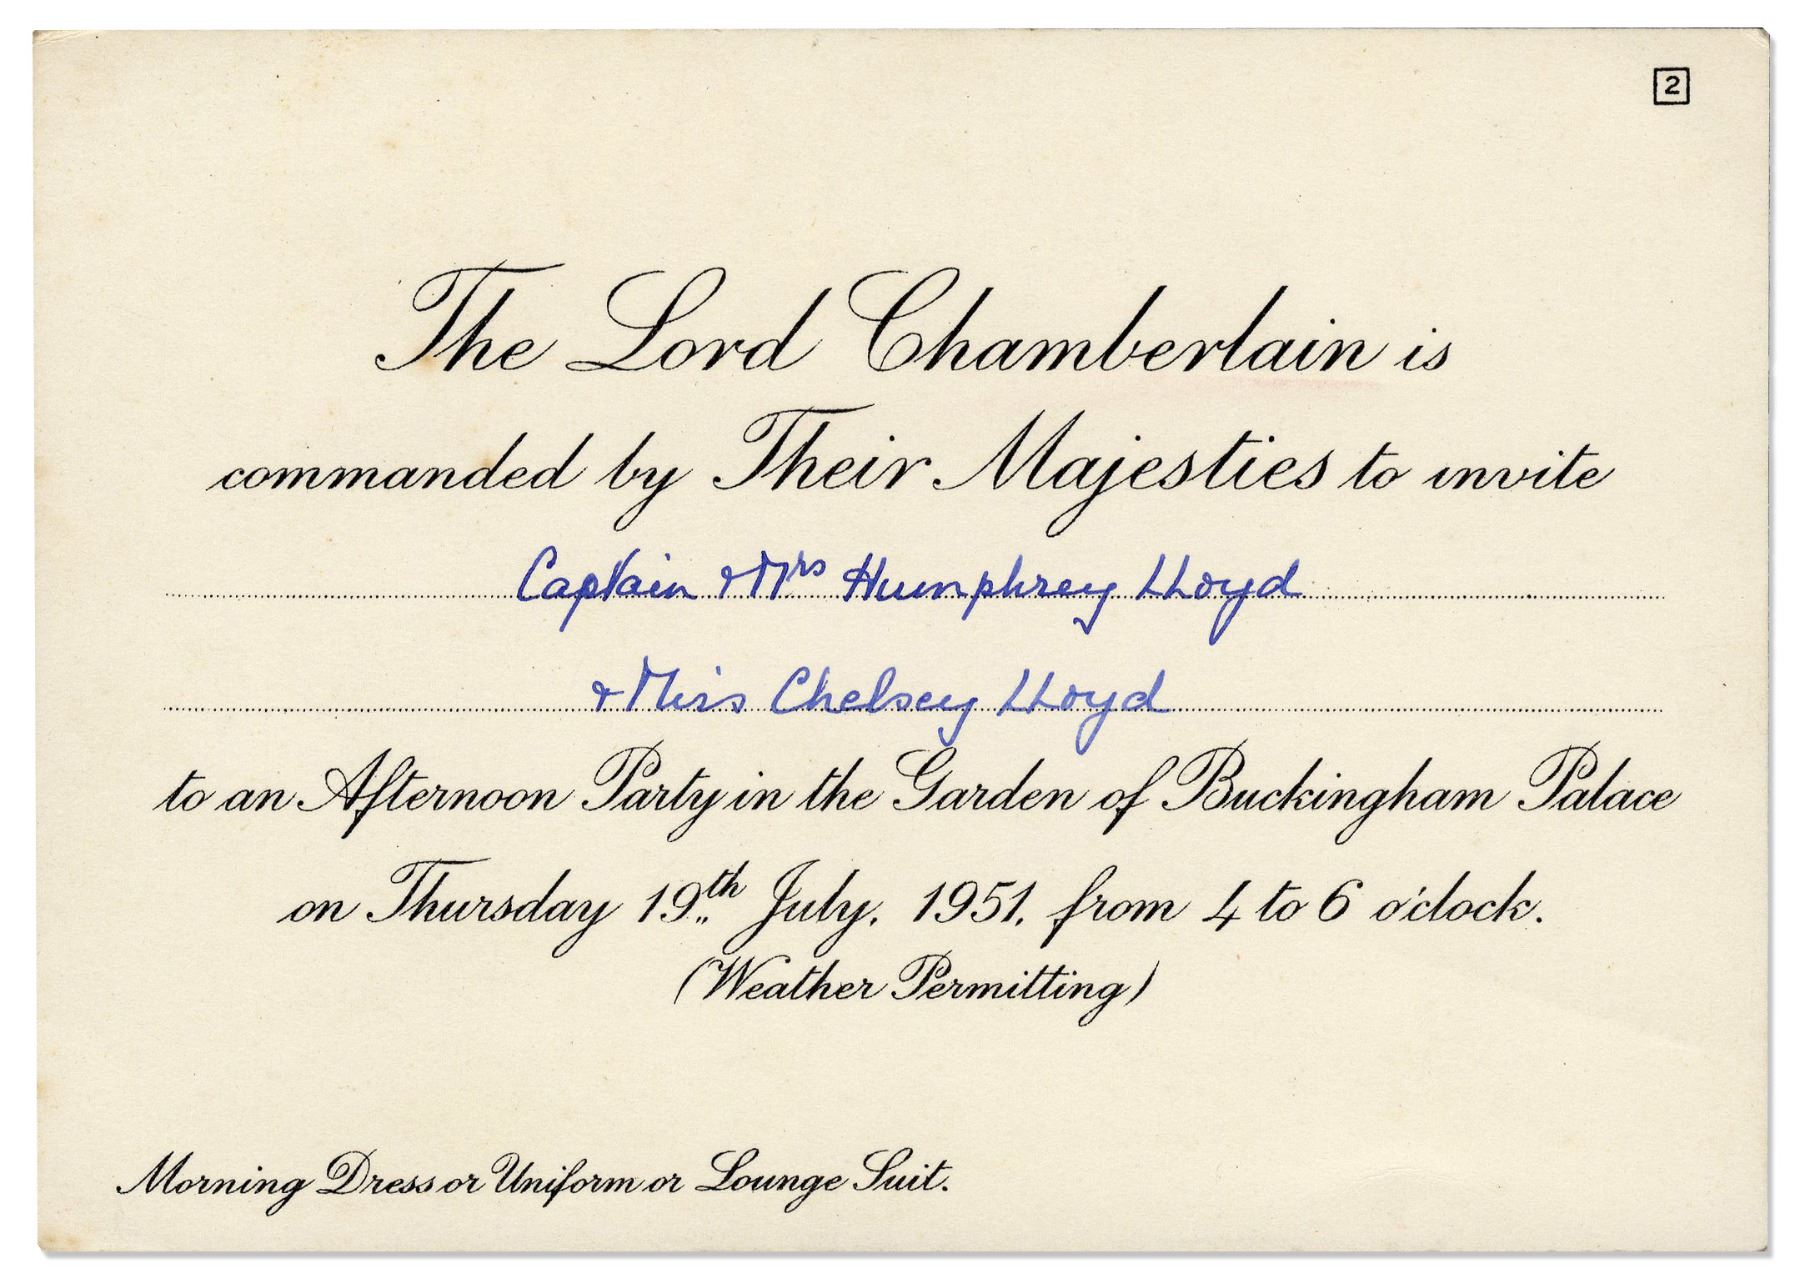 2
The Lord Chamberlain is
commanded by Their Majesties to invite
Captain & Mrs Humphrey Lloyd
& Miss Chelsey Lloyd
to an Afternoon Party in the Garden of Buckingham Palace
on Thursday 19th July, 1951, from 4 to 6 o'clock.
(Weather Permitting)
Morning Dress or Uniform or Lounge Suit.